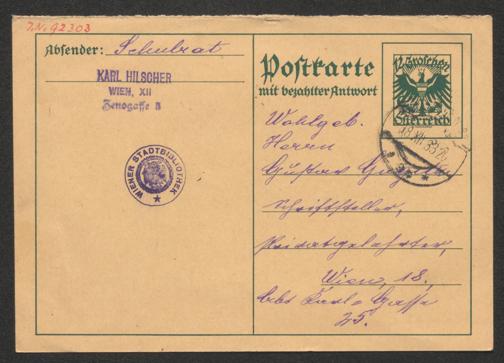 J.N. 92303
Absender: Schulrat
KARL HILSCHER
WIEN, XII
Zenogasse 5
WIENER STADTBIBLIOTHEK
Postkarte
mit bezahlter Antwort
12 Groschen
Österreich
Wohlgeb.
Herrn
Gustav
Schriftsteller,
Privatgelehrter,
Wien, 18,
Gasse
25.